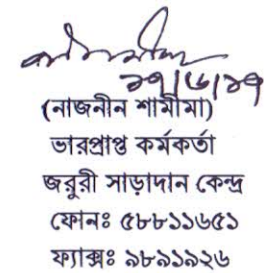 (নাজনীন শামীমা)
ভারপ্রাপ্ত কর্মকর্তা
জরুরী সাড়াদান কেন্দ্র
ফোনঃ ৫৮৮১১৬৫১
ফ্যাক্সঃ ৯৮৯১৯২৬